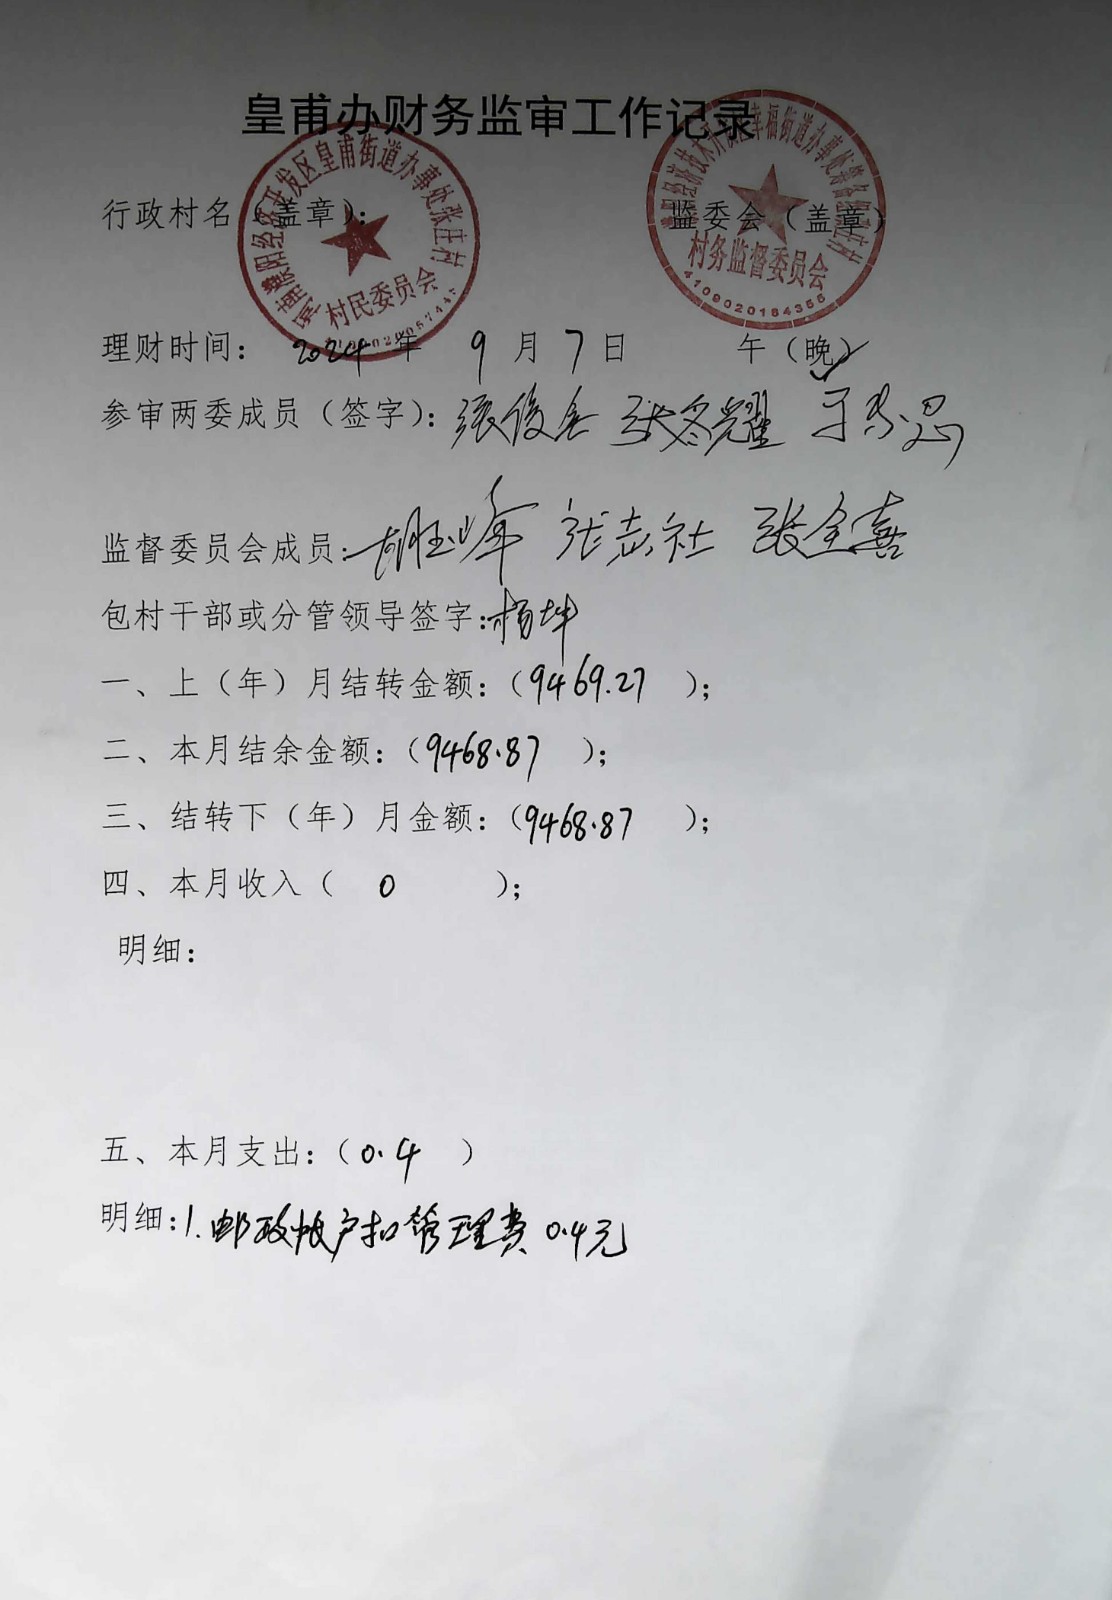 皇甫办财务监审工作记录
行政村名（盖章）： 监委会（盖章）
河南濮阳经济开发区皇甫街道办事处张庄村
村民委员会
村务监督委员会
4109020184355
理财时间： 2024 年 9 月 7 日 午（晚）
参审两委成员（签字）：张俊 张冬耀
监督委员会成员：胡玉峰 张志社 张全喜
包村干部或分管领导签字：杨坤
一、上（年）月结转金额：（9469.27 ）；
二、本月结余金额：（9468.87 ）；
三、结转下（年）月金额：（9468.87 ）；
四、本月收入（ 0 ）；
明细：
五、本月支出：（0.4 ）
明细：1.邮政帐户扣管理费0.4元